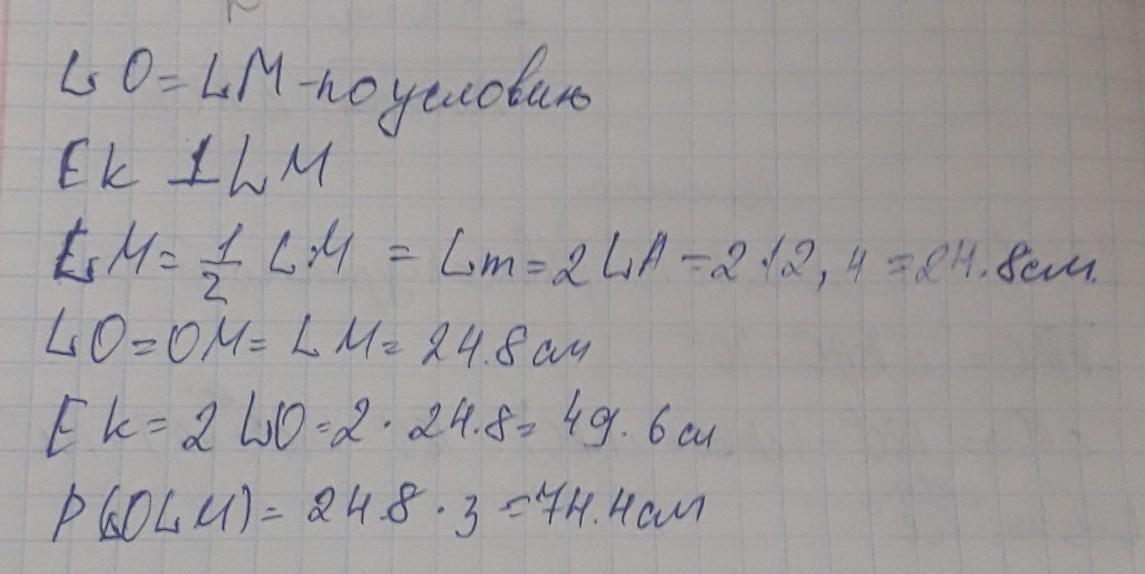 LO = LM - по условию
EK ⊥ LM
LM = 1/2 LM = Lm = 2 LA = 2·12,4 = 24.8см.
LO = OM = LM = 24.8см
EK = 2 LO = 2 · 24.8 = 49.6см
P(OLM) = 24.8 · 3 = 74.4см